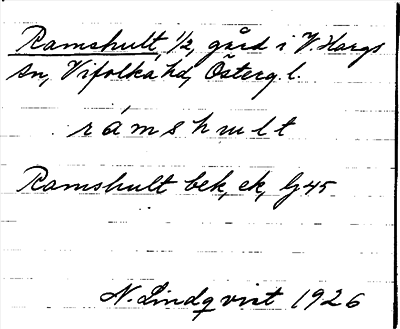 Ramshult, 1/2, gård i V. Hargs
sn, Vifolka hd, Österg. l.
rámshult
Ramshult bek, ek, G 45
N. Lindqvist 1926